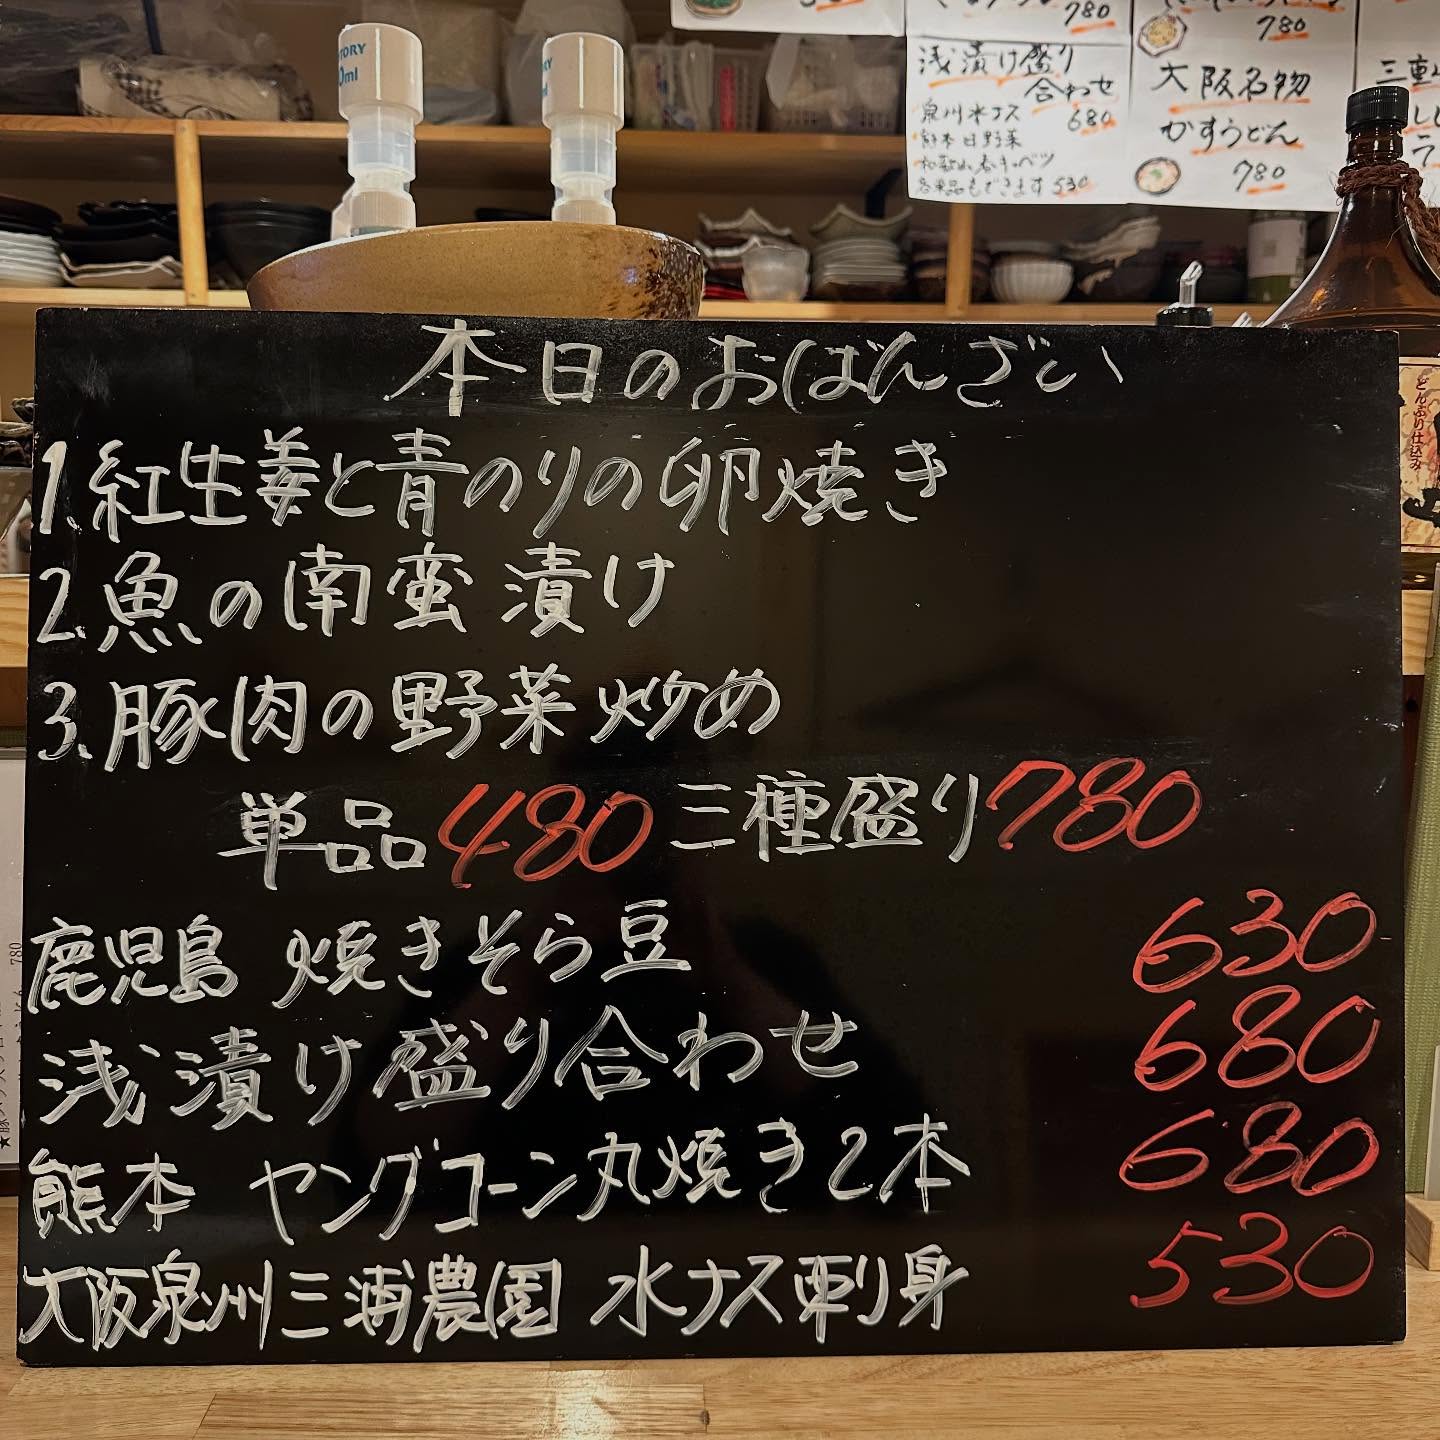 TORY
0ml
780
780
浅漬け盛り
合わせ
泉州水ナス 680
熊本日野菜
和歌山春キャベツ
各単品もできます 530
大阪名物
かすうどん
780
本日のおばんざい
1.紅生姜と青のりの卵焼き
2.魚の南蛮漬け
3.豚肉の野菜炒め
単品480 三種盛り780
鹿児島 焼きそら豆 630
浅漬け盛り合わせ 680
熊本 ヤングコーン丸焼き2本 680
大阪泉州三浦農園 水ナス刺身 530
どんぶり仕込み
780